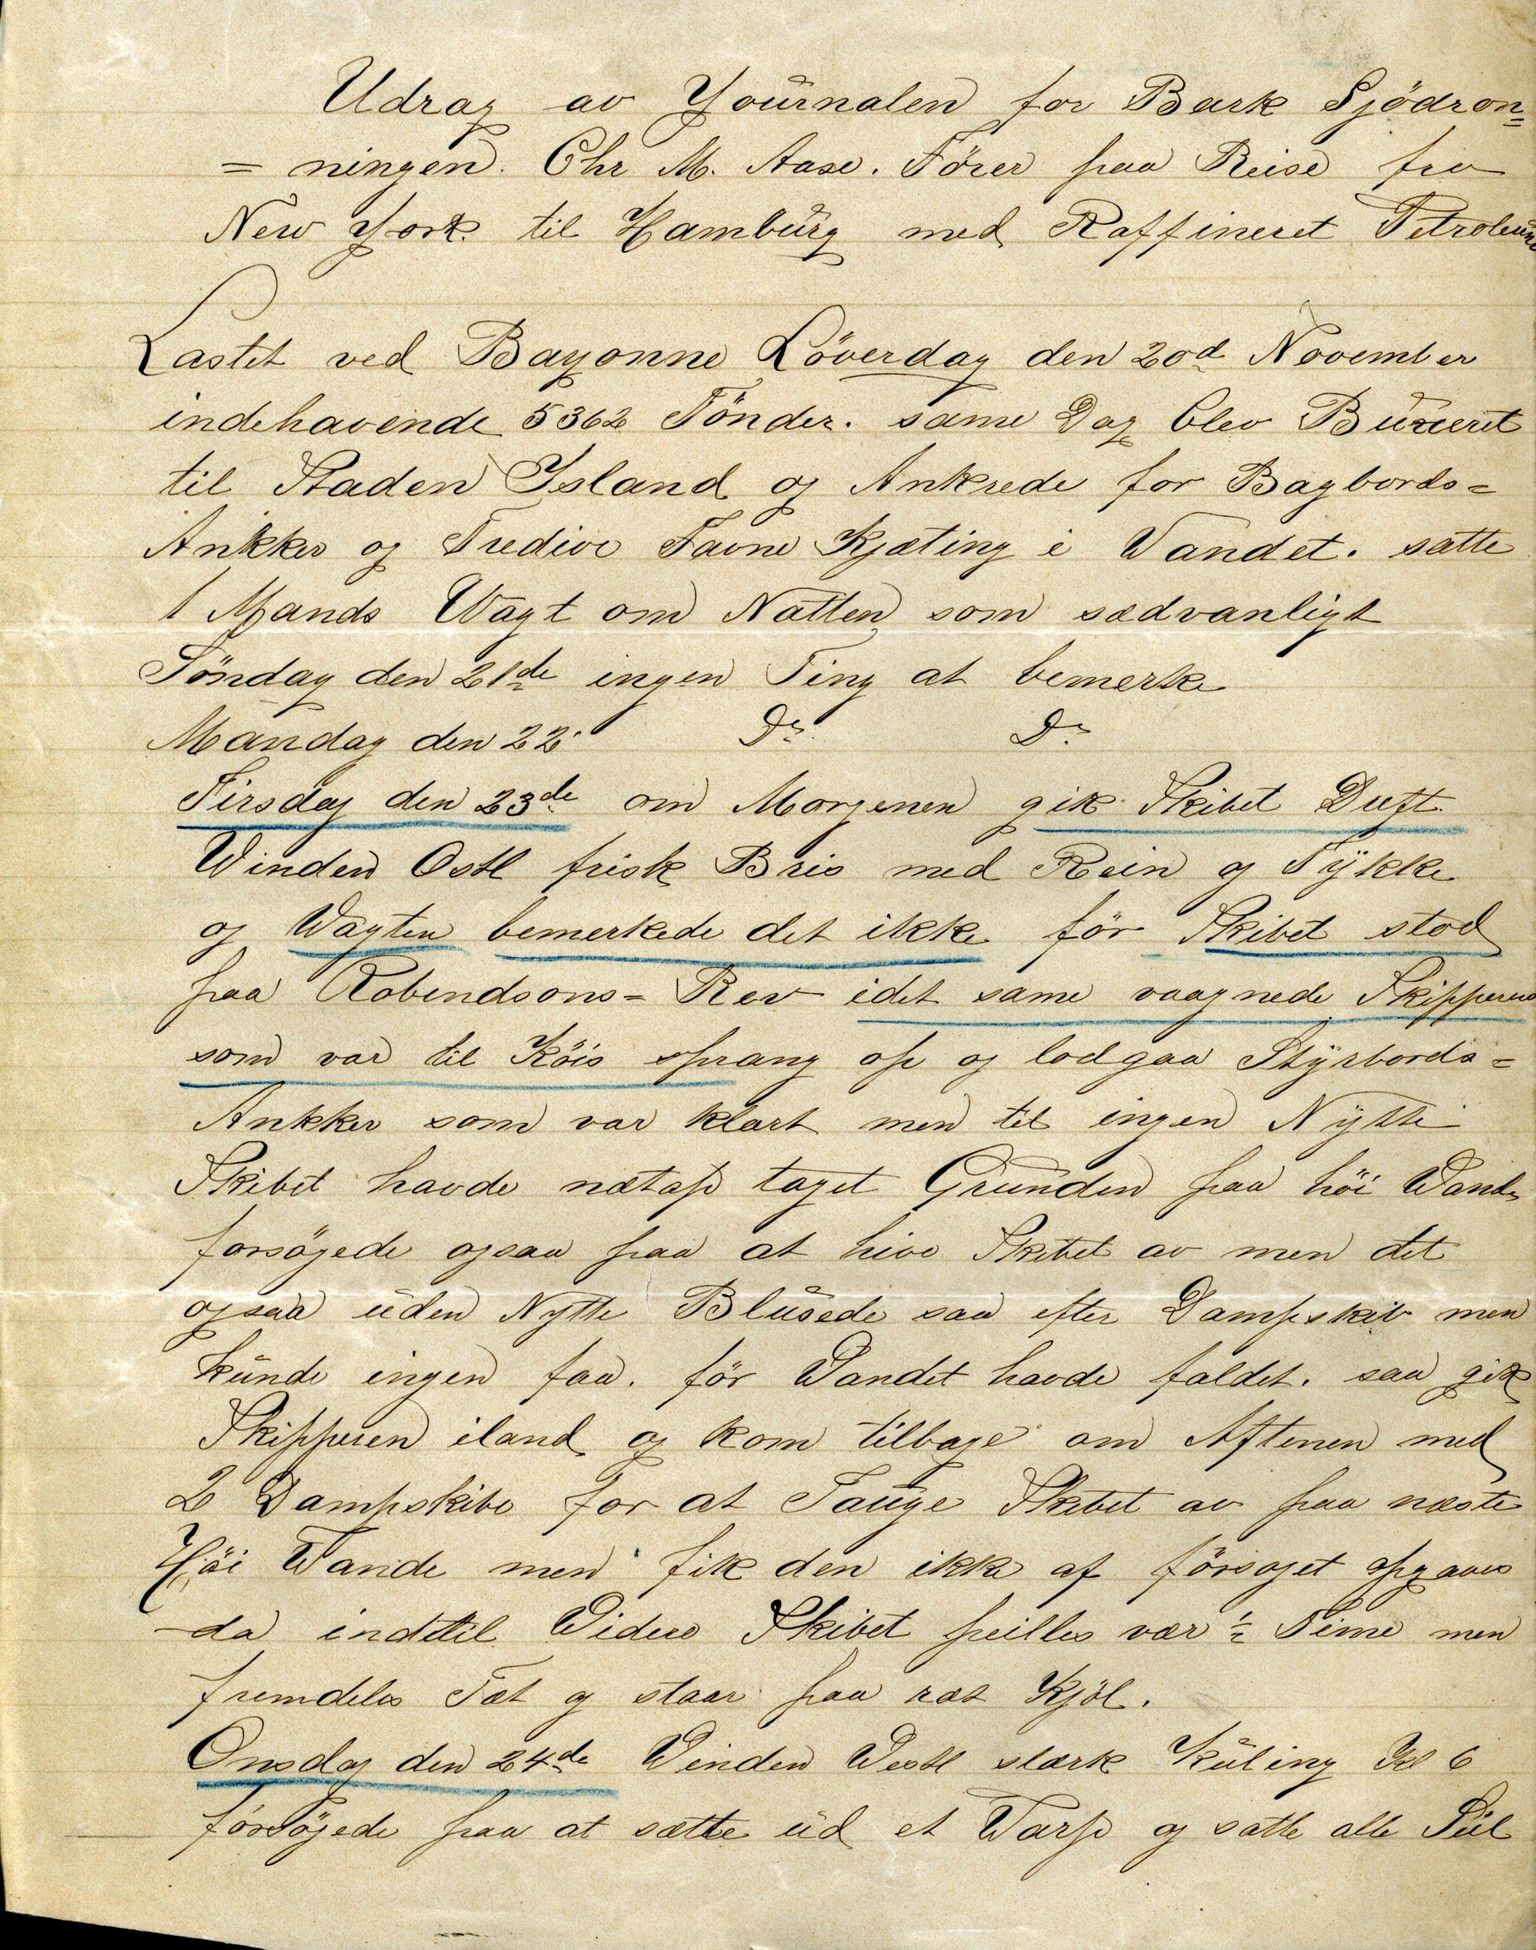 Udrag av Yournalen for Bark Sjödron=
= ningen. Chr M. Aase. Fører paa Reise fra
New York til Hamburg med Raffineret Petroleum
Lastet ved Bayonne Löverdag den 20de November
indehavende 5362 Tönder. same Dag blev Buxeret
til Staden Island og Ankrede for Bagbords=
Ankker og Tredive Favne Kjæting i Vandet. satte
1 Mands Vagt om Natten som sædvanligt
Söndag den 21de ingen Ting at bemerke
Mandag den 22. Do Do
Tirsdag den 23de om Morgenen gik Skibet Duft
Vinden Ostl frisk Bris med Rein og Tykke
og Vagten bemerkede det ikke för Skibet stod
paa Robendsons= Rev idet same vaagnede Skipperen
som var til Köis sprang op og lod gaa Styrbords=
Ankker som var klart men til ingen Nytte
Skibet havde netop taget Grunden paa höi Vande
forsögede ogsaa paa at hive Skibet av men det
ogsaa uden Nytte Blusede saa efter Dampskib men
kunde ingen faa. för Vandet havde faldet. saa gik
Skipperen iland og kom tilbage om Aftenen med
2 Dampskibe for at Tauge Skibet av paa næste
Höi Vande men fik den ikke af försøget opgaves
da indtil Videre Skibet peilles vær ½ Time men
fremdeles Tæt og staar paa ræt Kjöl.
Onsdag den 24de Vinden Vestl stærk Kuling Kl 6
försögede paa at sætte ud et Varp og satte alle Seil